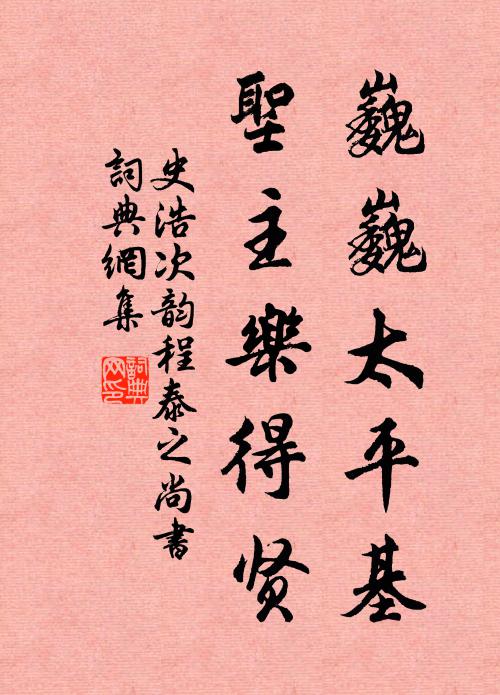 巍巍太平基
聖主樂得贤
史浩次韵程泰之尚書
詞典網集
詞典網印